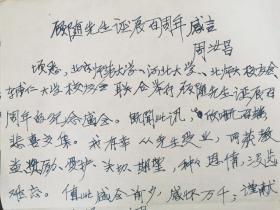 顾随先生诞辰百周年感言
周汝昌
顷悉，北京师范大学、河北大学、北师大校友会
辅仁大学校友会联合举行顾随先生诞辰百
周年的纪念盛会。欣闻此讯，
悲喜交集。我有幸从先生受业，而获教
益奖励、爱护、关切、期望，种种恩情，没齿
难忘。值此盛会前夕，感怀万千；谨献